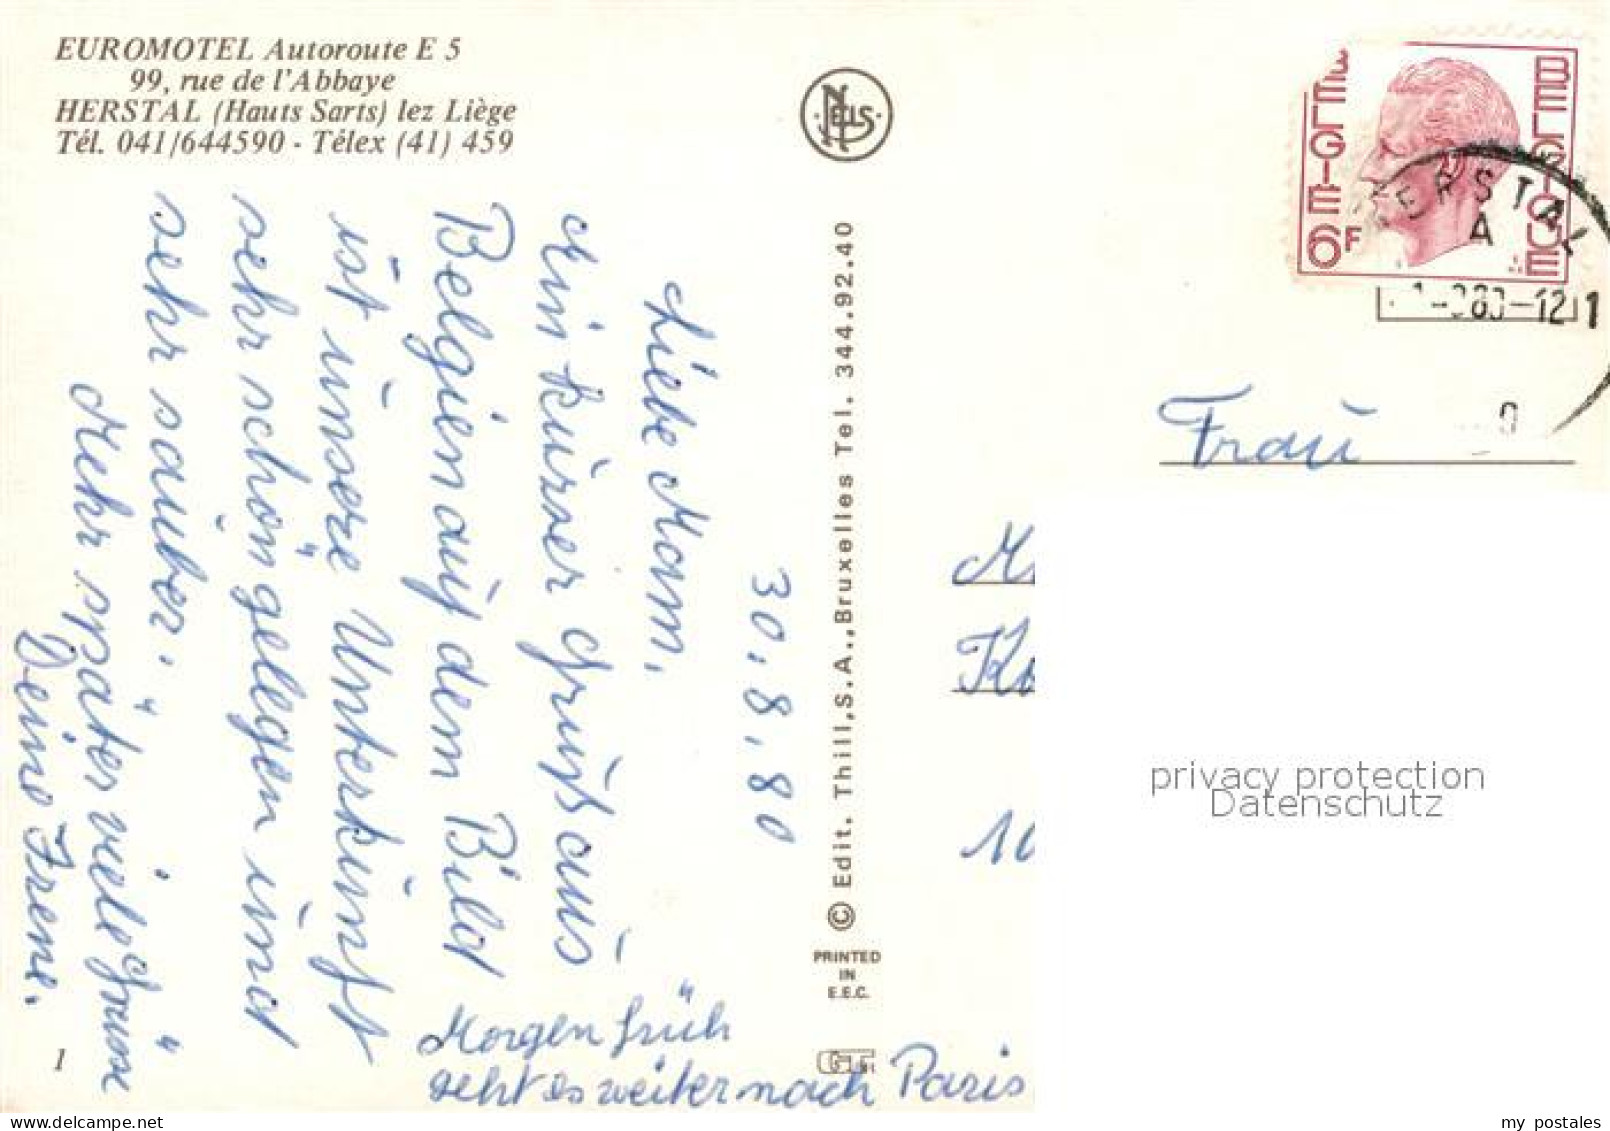 EUROMOTEL Autoroute E 5
99, rue de l'Abbaye
HERSTAL (Hauts Sarts) lez Liège
Tél. 041/644590 - Télex (41) 459
NELLS
BELGIE
BELGIQUE
6F
HERSTAL
A
30.8.80
Liebe Mam,
Ein kurzer Gruß aus
Belgien auf dem Bild
ist unsere Unterkunft
sehr schön gelegen und
sehr sauber.
Mehr später viele Grüsse
Deine Irene.
Morgen früh
geht es weiter nach Paris
© Edit. Thill, S.A., Bruxelles Tel. 344.92.40
PRINTED
IN
E.E.C.
1
Frau
privacy protection
Datenschutz
my postales